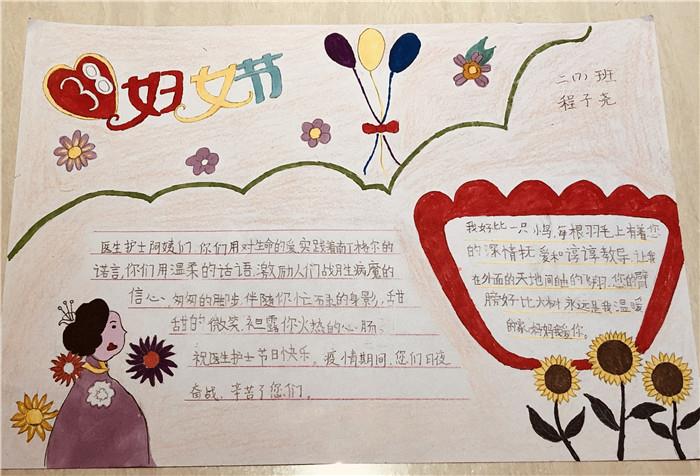 38 妇女节
三(1)班
程子尧
医生护士阿姨们，你们用对生命的爱实践着南丁格尔的
诺言，你们用温柔的话语，激励人们战胜病魔的
信心，匆匆的脚步，伴随你忙不束的身影，甜
甜的微笑，袒露你火热的心肠。
祝医生护士节日快乐。疫情期间，您们日夜
奋战，辛苦了您们。
我好比一只小鸟，每根羽毛上有着您
的深情抚爱和谆谆教导，让我
在外面的天地间自由飞翔，您的臂
膀好比大树，永远是我温暖
的家，妈妈我爱你。